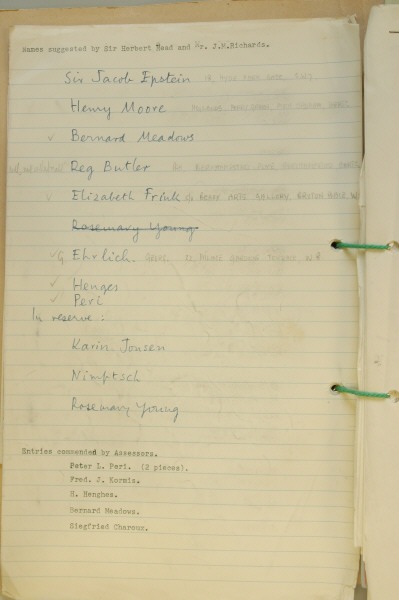 Names suggested by Sir Herbert Read and Mr. J.M.Richards.
Sir Jacob Epstein 18, HYDE PARK GATE, S.W.7
Henry Moore
✓ Bernard Meadows
Reg Butler
✓ Elizabeth Frink c/o BEAUX ARTS GALLERY, BRUTON PLACE, W1
Rosemary Young
✓ G. Ehrlich. GEORG
✓ Henges
✓ Peri
In reserve:
Karin Jonsen
Nimptsch
Rosemary Young
Entries commended by Assessors.
Peter L. Peri. (2 pieces).
Fred. J. Kormis.
H. Henghes.
Bernard Meadows.
Siegfried Charoux.